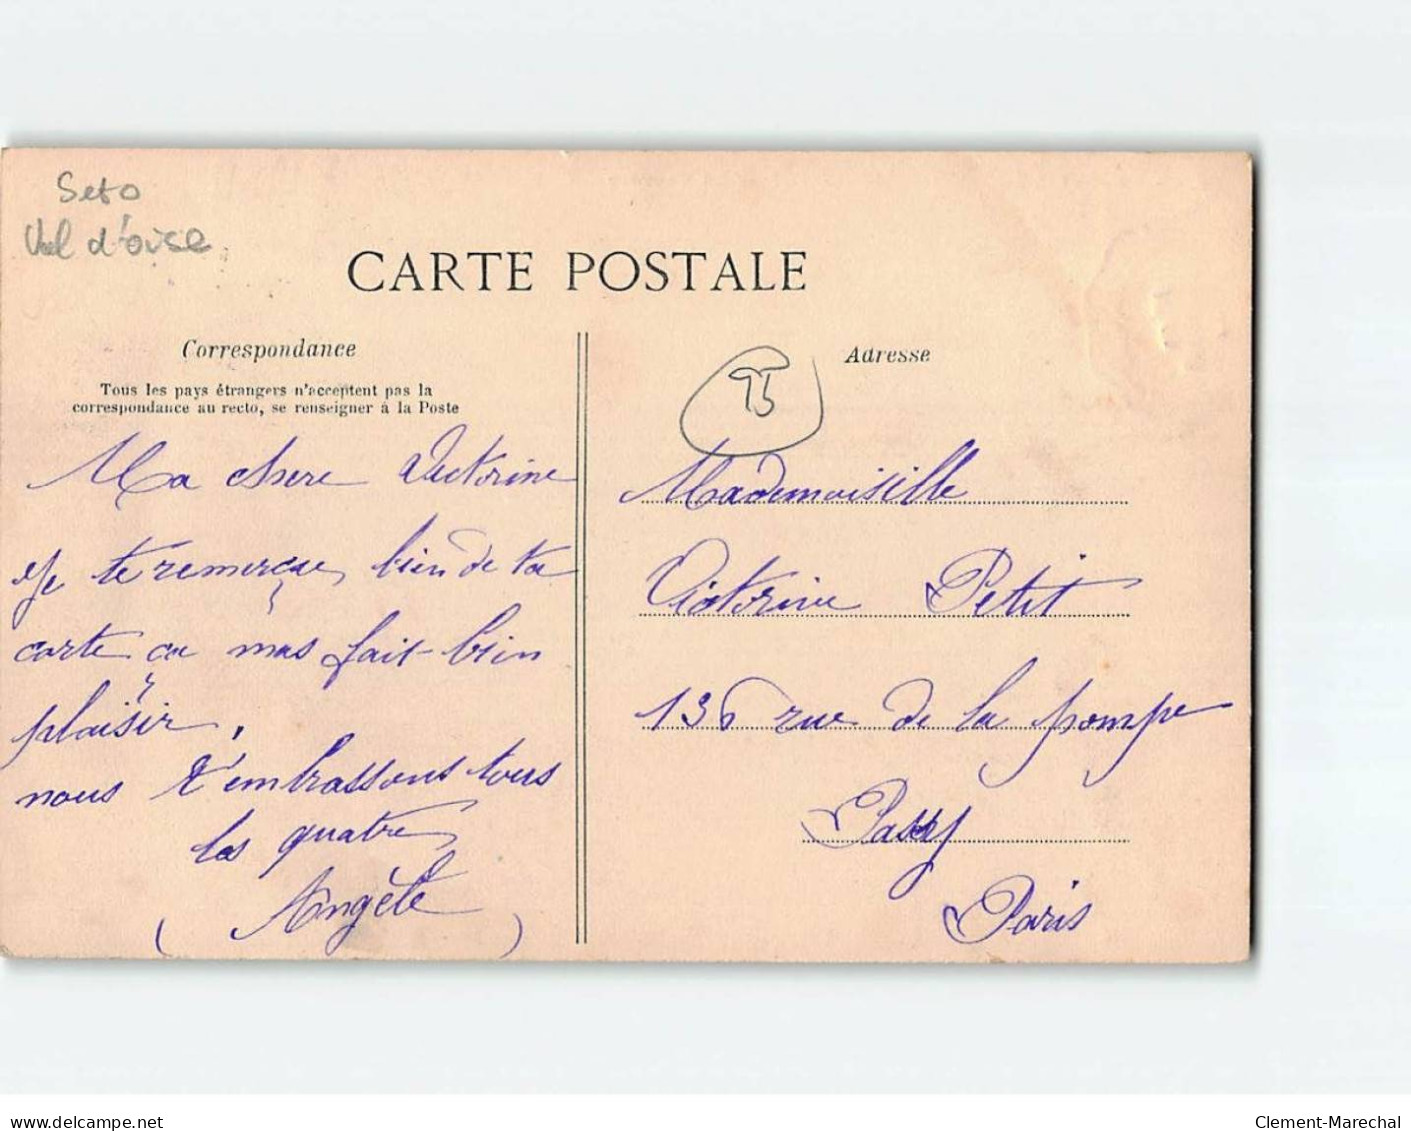 Seto
Val d'oise
CARTE POSTALE
Correspondance
Tous les pays étrangers n'acceptent pas la
correspondance au recto, se renseigner à la Poste
Ma chere Victorine
Je te remerçie bien de ta
carte ca mas fait bien
plaisir,
nous t'embrassons tous
les quatre
(Angèle)
Adresse
Mademoisille
Victorine Petit
136 rue de la pompe
Passy
Paris
www.delcampe.net
Clement-Marechal